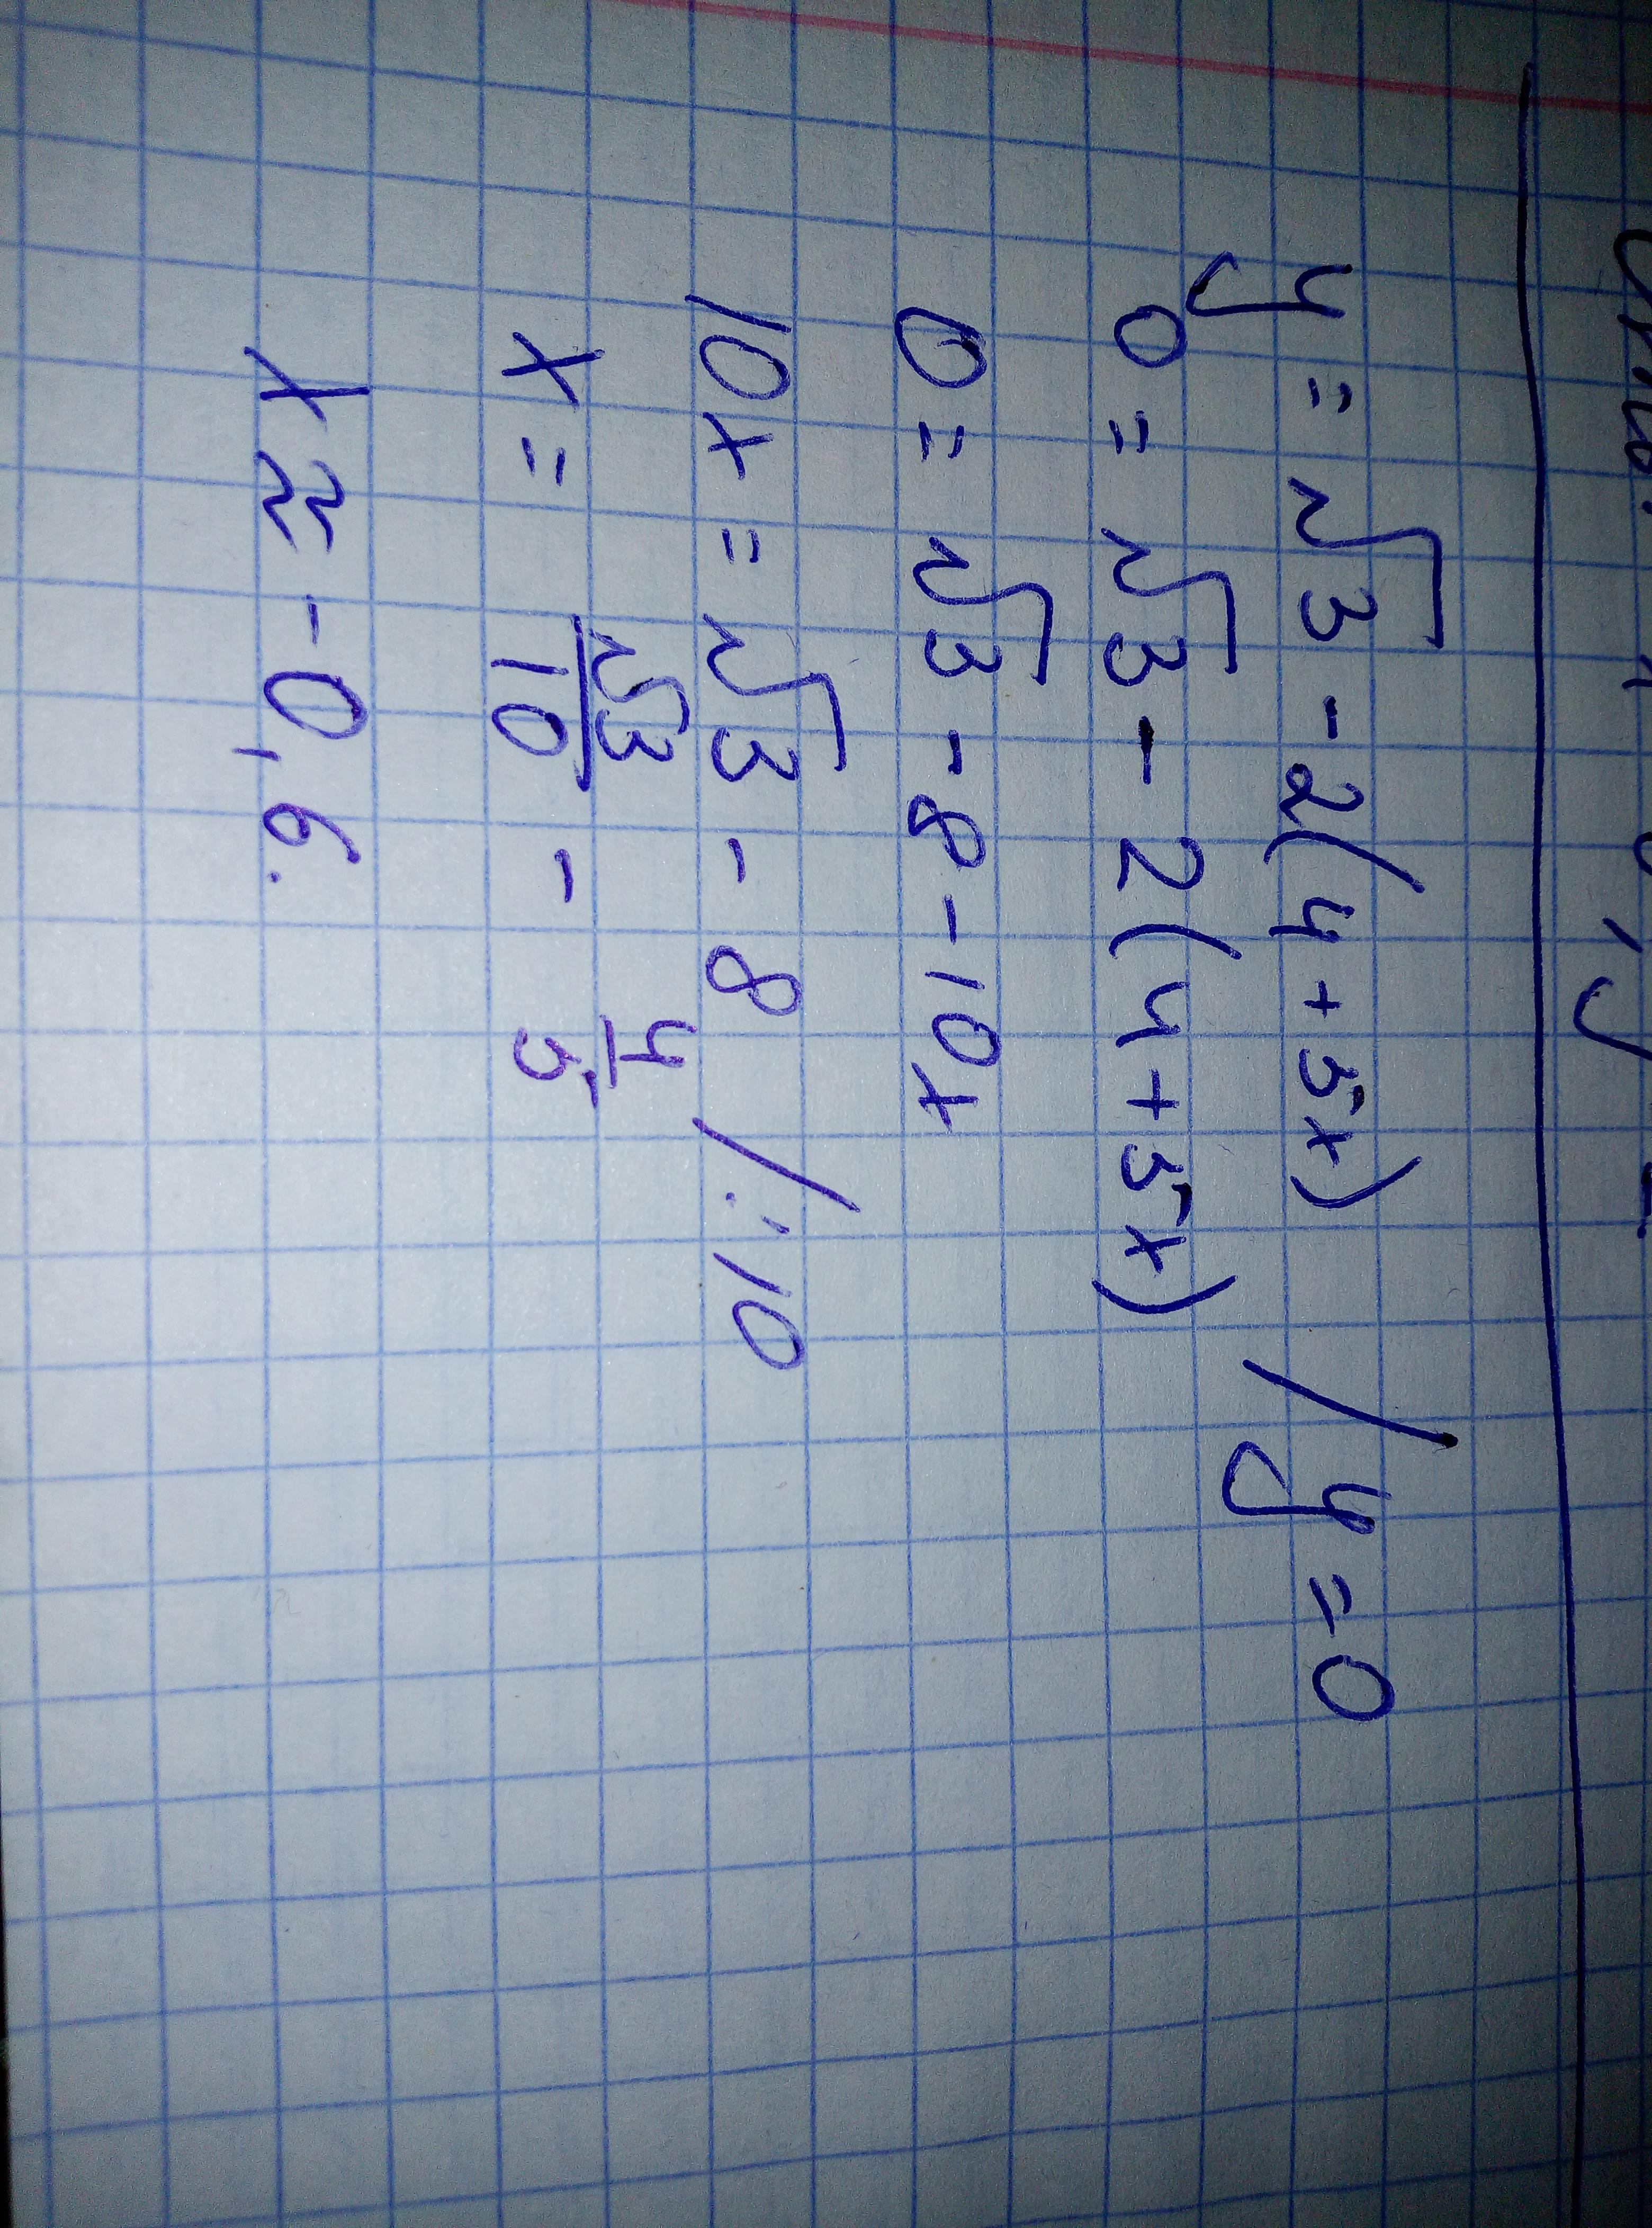 y = √3 - 2(4 + 5x) / y = 0
0 = √3 - 2(4 + 5x)
0 = √3 - 8 - 10x
10x = √3 - 8 / :10
x = √3/10 - 4/5
x ≈ -0,6.